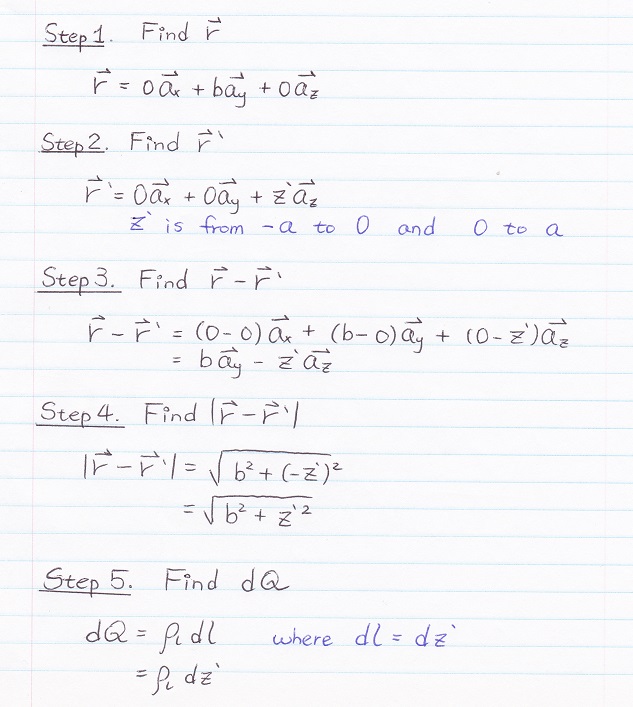 Step 1. Find r⃗
r⃗ = 0a⃗ₓ + ba⃗y + 0a⃗z
Step 2. Find r⃗`
r⃗` = 0a⃗ₓ + 0a⃗y + z`a⃗z
z` is from -a to 0 and 0 to a
Step 3. Find r⃗ - r⃗`
r⃗ - r⃗` = (0-0)a⃗ₓ + (b-0)a⃗y + (0-z`)a⃗z
= ba⃗y - z`a⃗z
Step 4. Find |r⃗ - r⃗`|
|r⃗ - r⃗`| = √(b² + (-z`)²)
= √(b² + z`²)
Step 5. Find dQ
dQ = ρₗ dl where dl = dz`
= ρₗ dz`